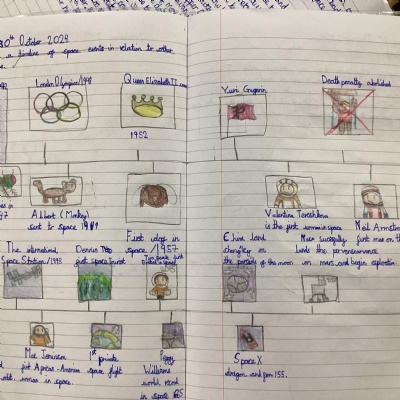 30th October 2024
a timeline of space events in relation to other
London Olympics/1948
Queen Elizabeth II
1952
Yuri Gagarin
Death penalty abolished
Albert (Monkey)
sent to space
First dog in
space/1957
Valentina Tereshkova
is the first woman in space
Neil Armstrong
first man on the
The international
Space Station/1998
Dennis Tito
first space tourist
China land
chang'e 4 on
the farside of the moon
Nasa successfully
lands the perseverance
on mars and begin exploration
Mae Jemison
first African-American
woman in space.
1st private
space flight
Peggy
Williams
world record
in space 665
Space X
dragon and from ISS.